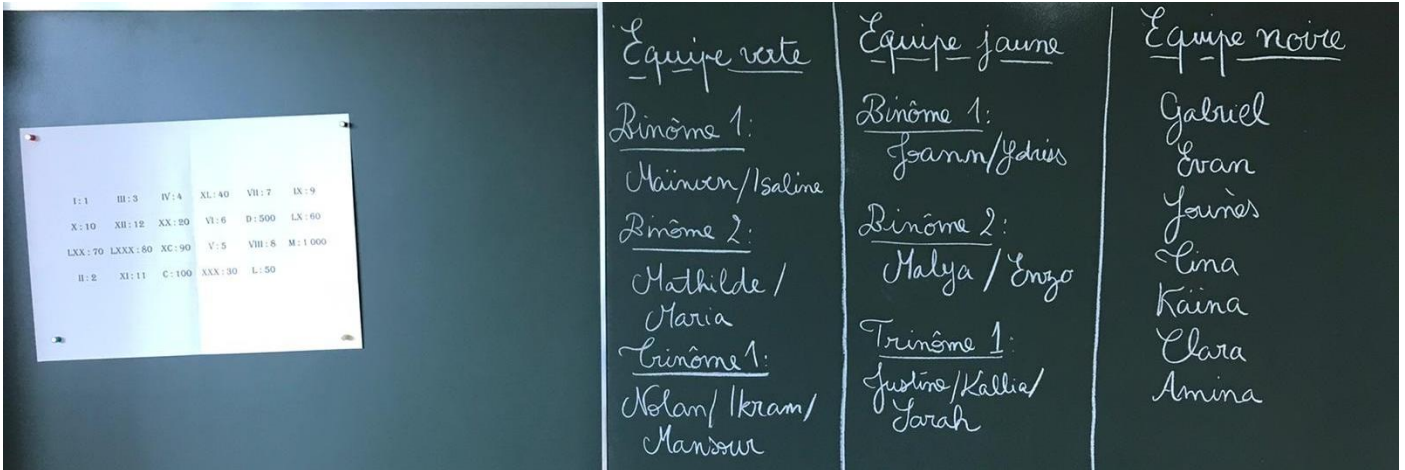 I : 1 III : 3 IV : 4 XL : 40 VII : 7 IX : 9
X : 10 XII : 12 XX : 20 VI : 6 D : 500 LX : 60
LXX : 70 LXXX : 80 XC : 90 V : 5 VIII : 8 M : 1 000
II : 2 XI : 11 C : 100 XXX : 30 L : 50
Équipe verte
Binôme 1 :
Maïnwen/Isaline
Binôme 2 :
Mathilde /
Maria
Trinôme 1 :
Nolan/ Ikram/
Mansour
Équipe jaune
Binôme 1 :
Joann/Ydriss
Binôme 2 :
Malya / Enzo
Trinôme 1 :
Justine/Kallia/
Sarah
Équipe noire
Gabriel
Évan
Younès
Tina
Kaïna
Clara
Amina